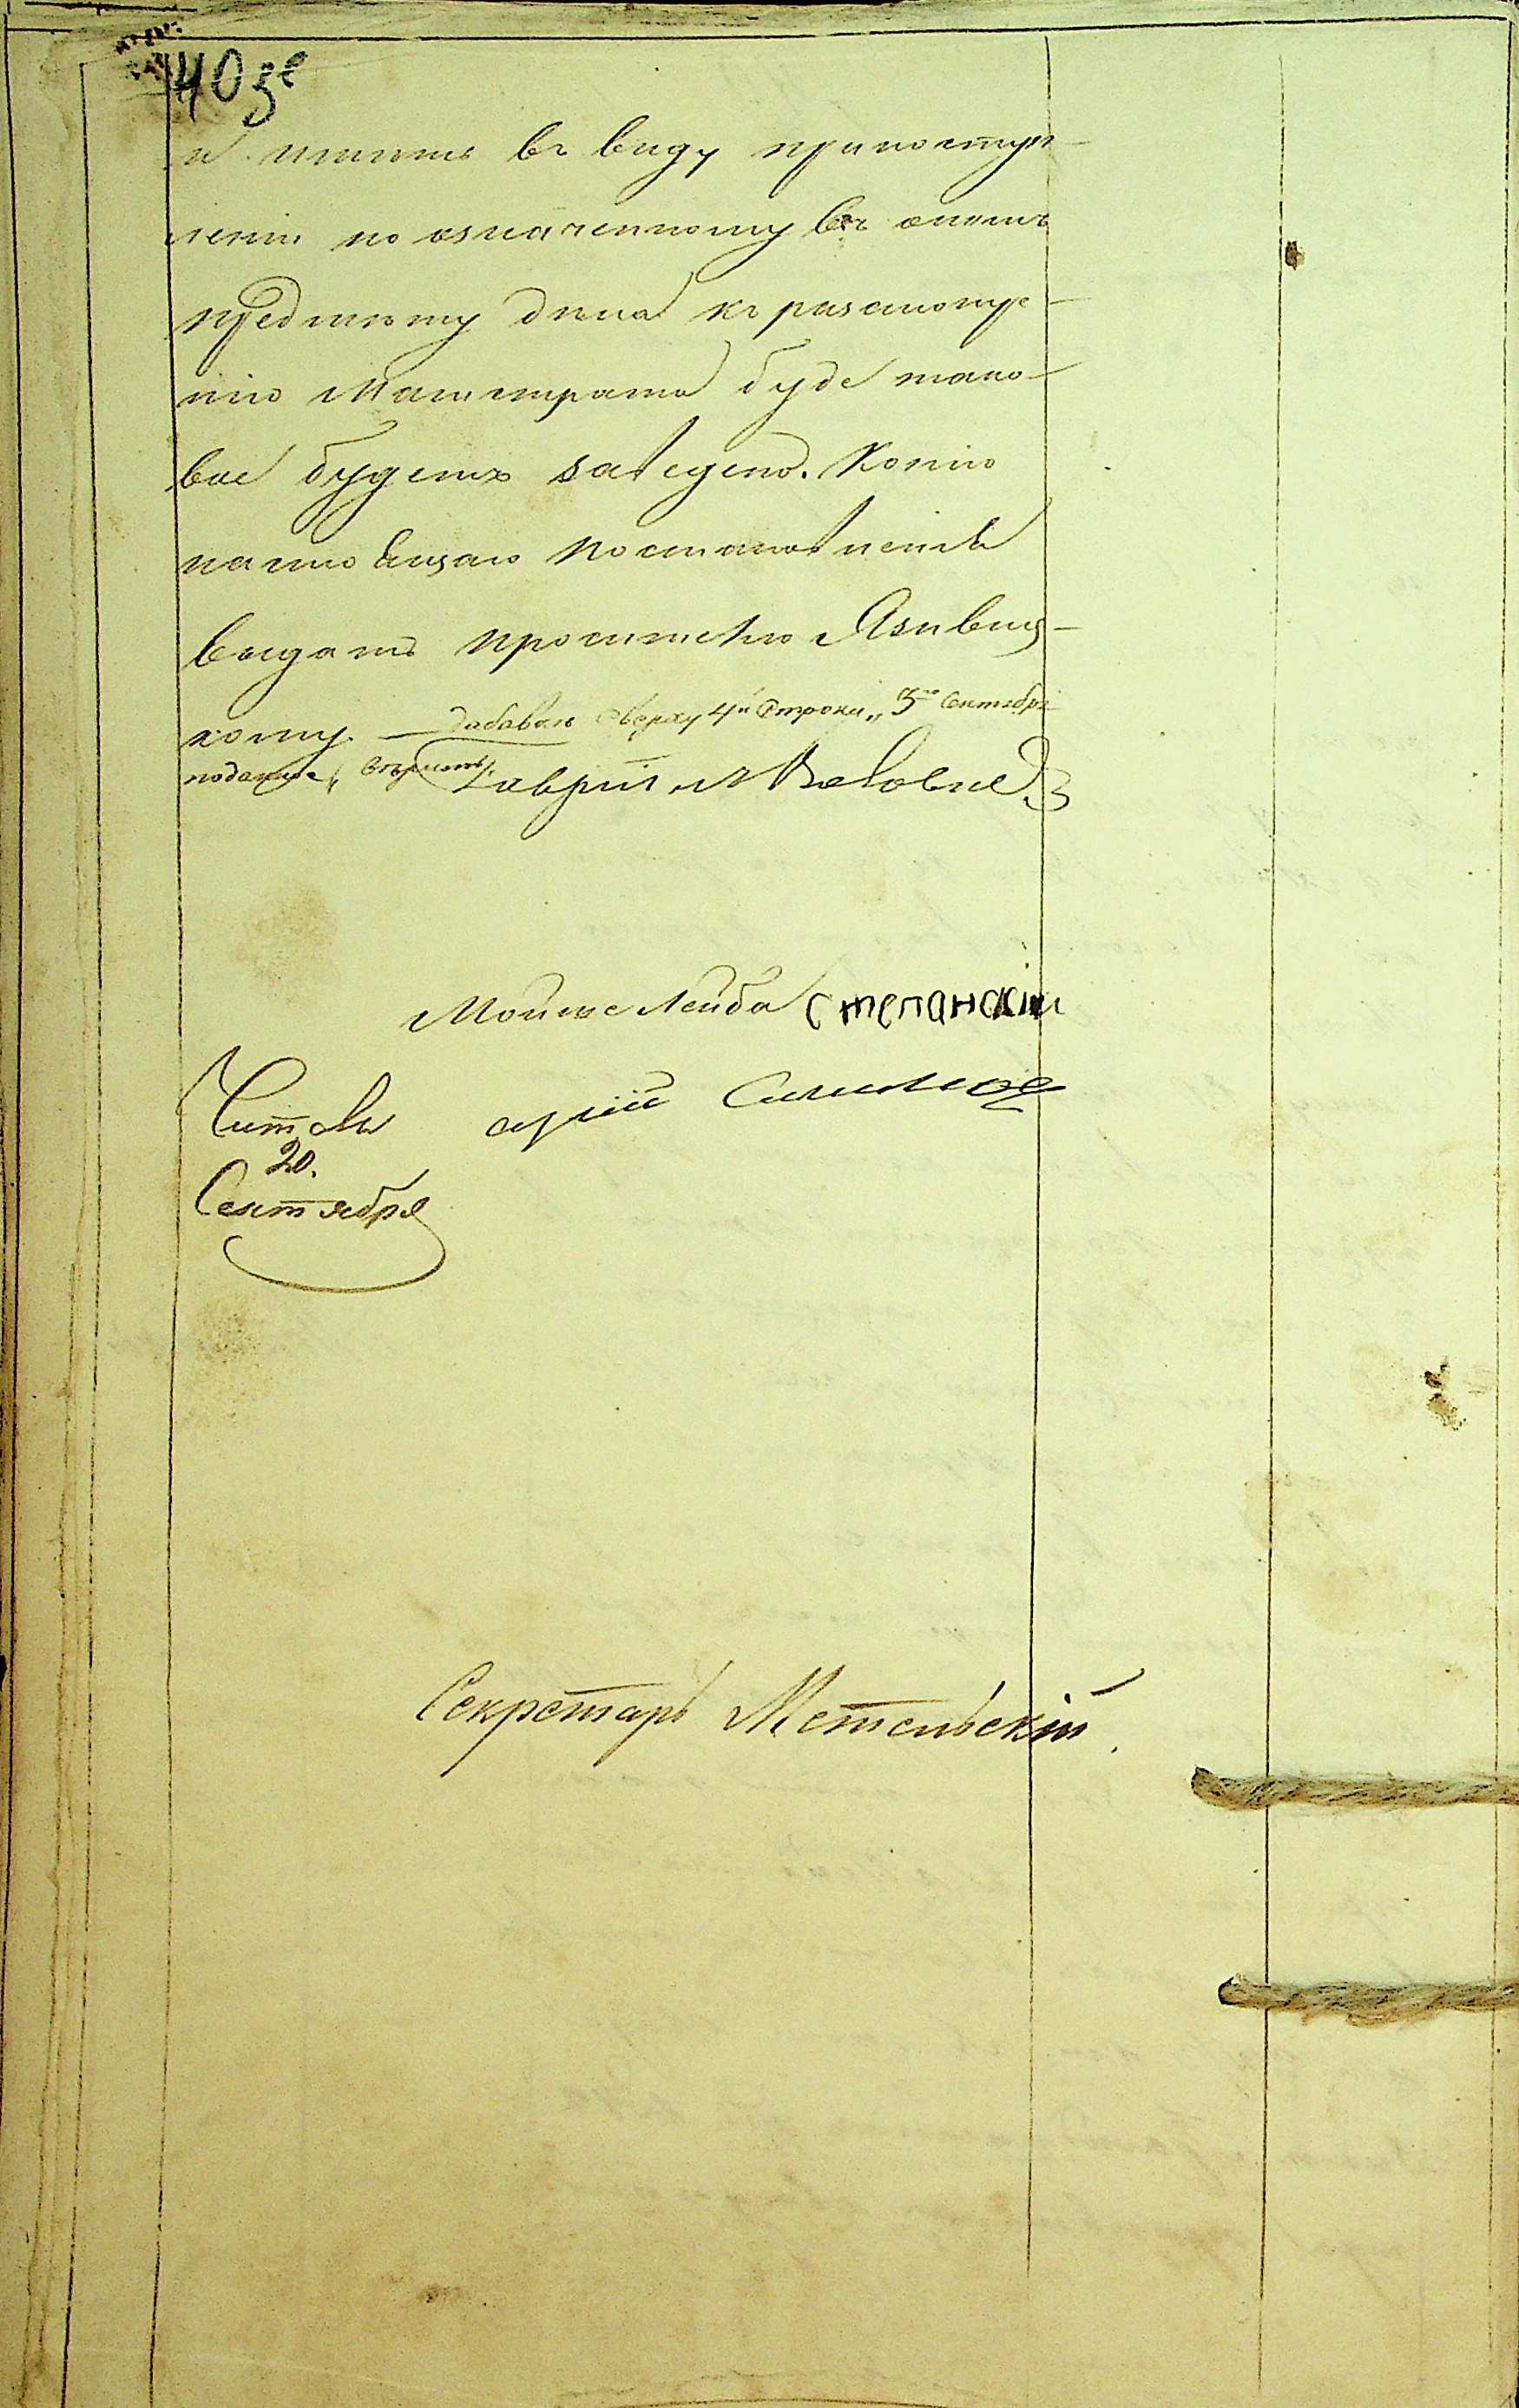 403 е
и иметь въ виду при поступ-
леніи по означенному въ ономъ
предмету дѣла къ разсмотре-
нію Магистрата буде тако-
вое будетъ заведено. Копію
настоящаго постановленія
выдать просителю Язвин-
кому. — добаввлен сверху 4й строки „ 3го Сентября
поданное, вѣрно
Гавріил
Мойше Лейба Степанскій
Читалъ
20.
Сентября
Секретарь Метельскій.